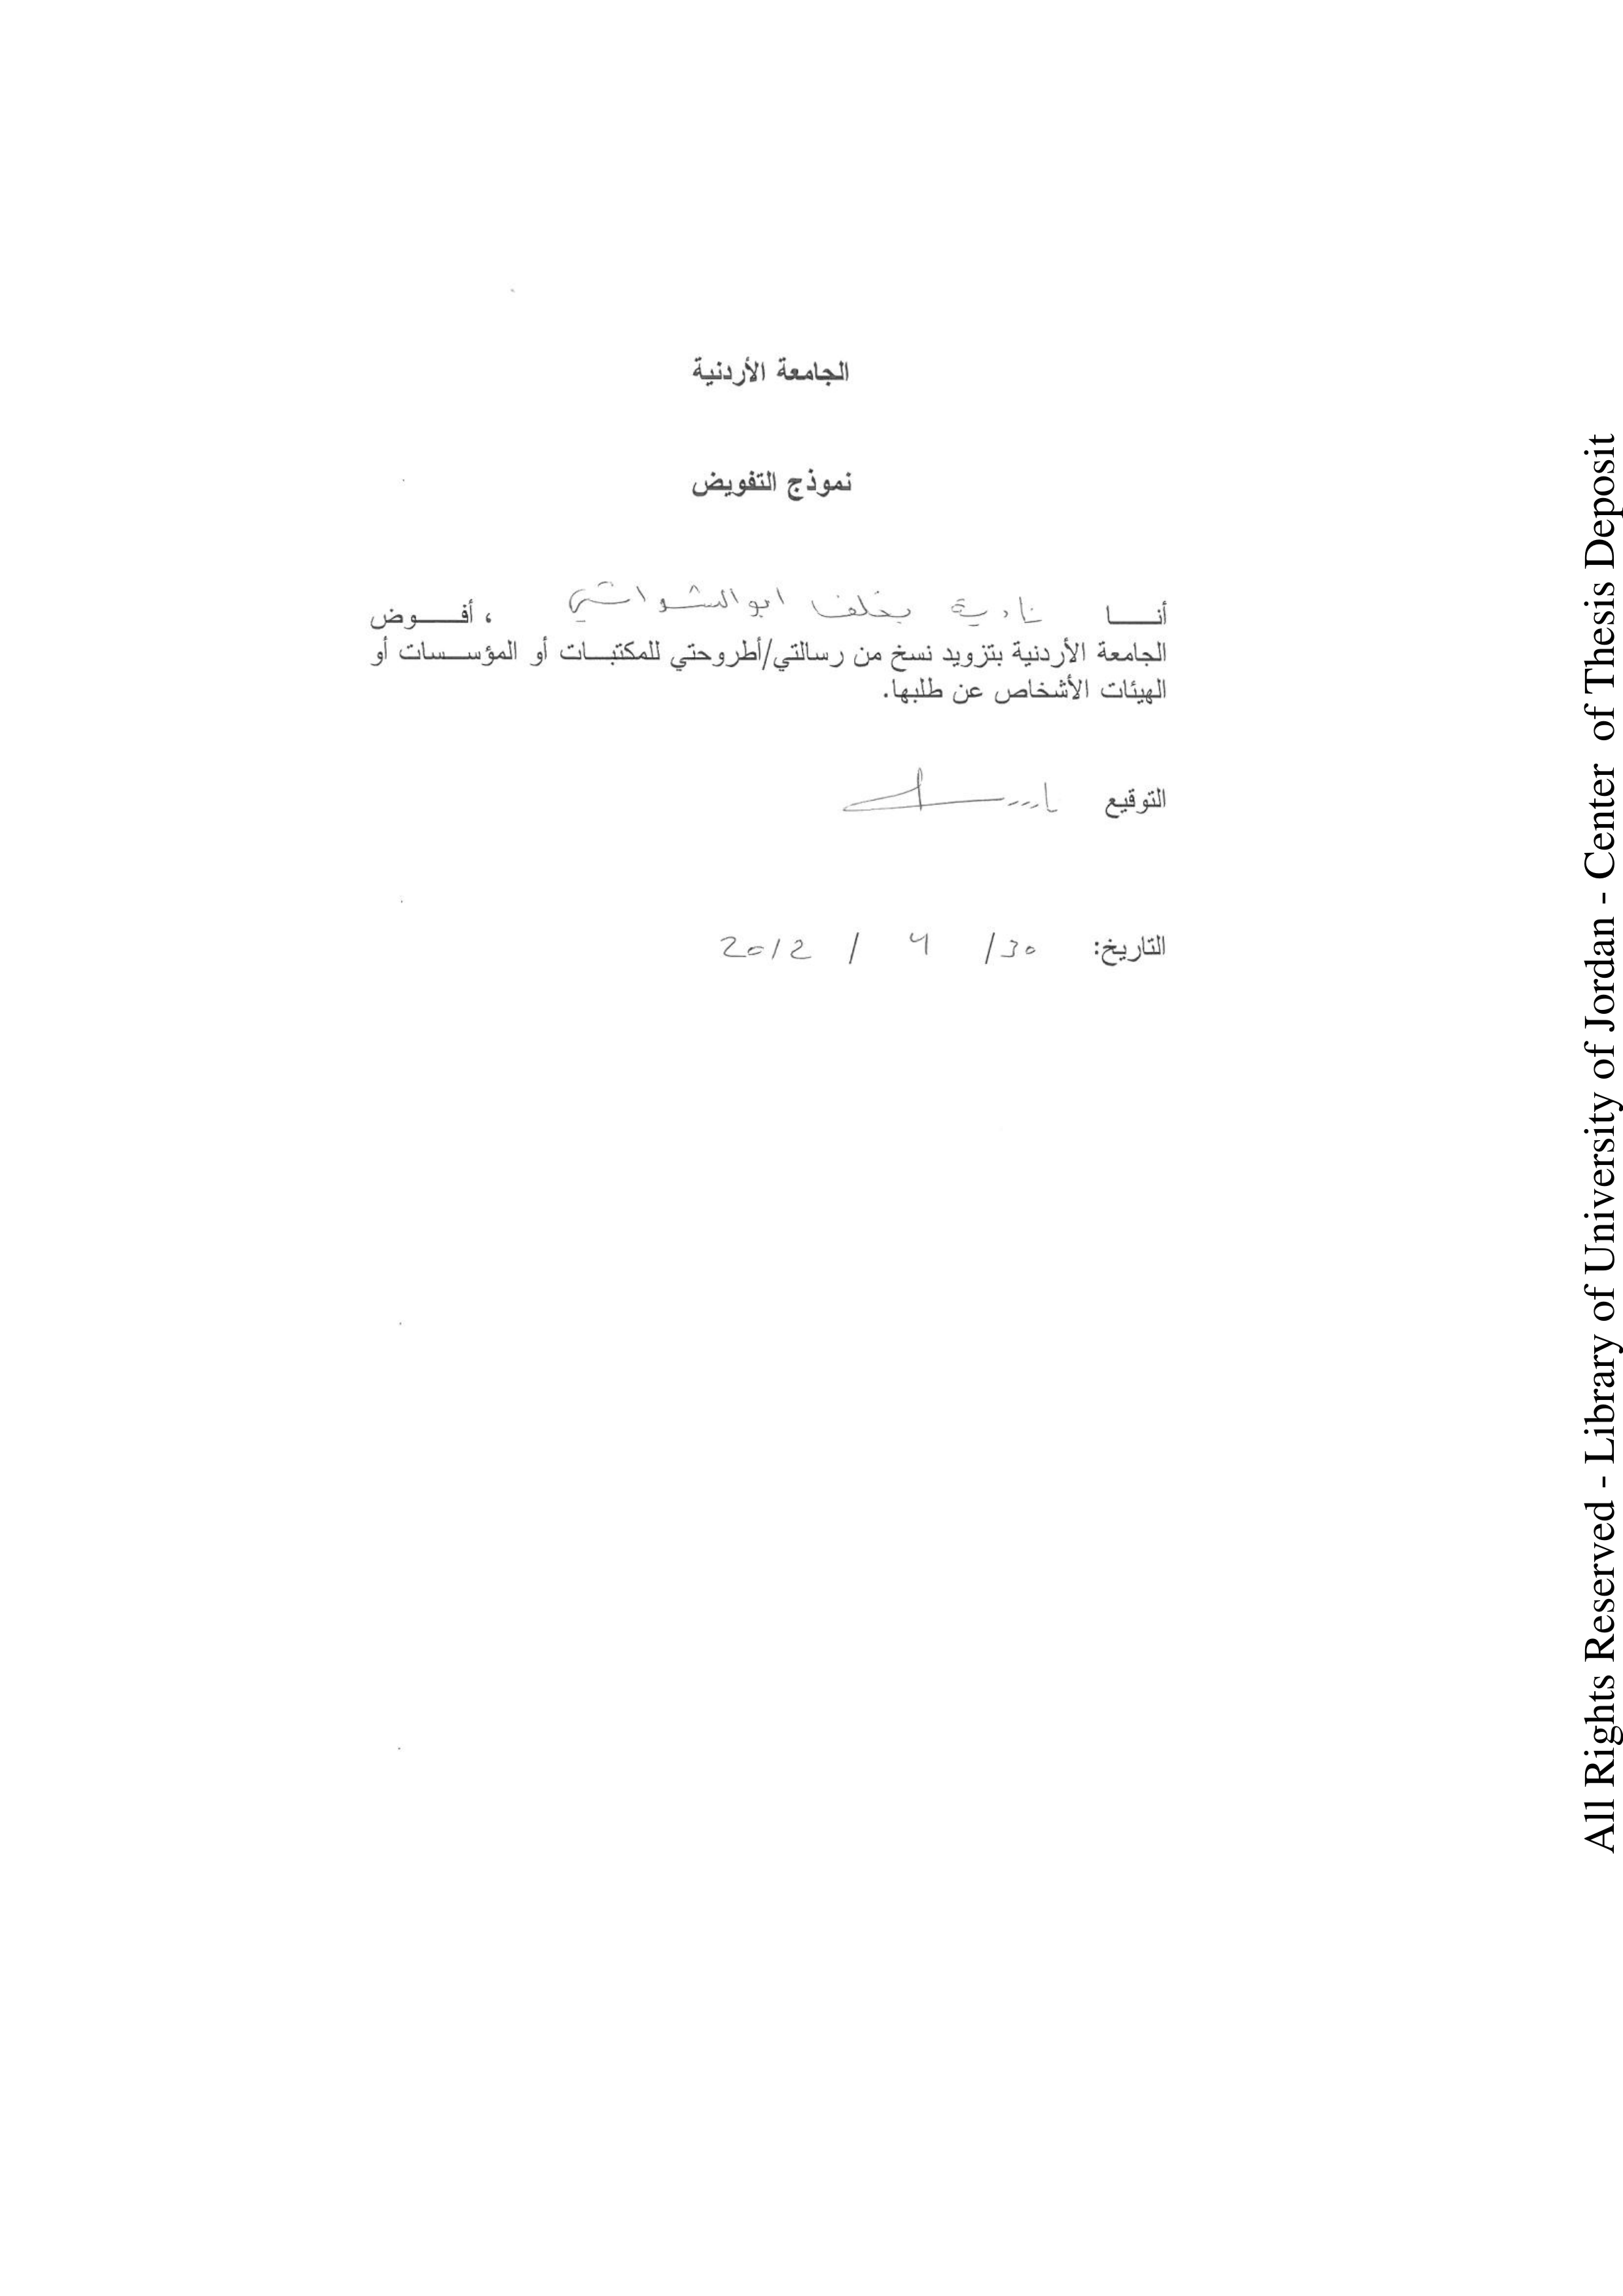 الجامعة الأردنية
نموذج التفويض
أنا نادية ابو ، أفوض
الجامعة الأردنية بتزويد نسخ من رسالتي/أطروحتي للمكتبات أو المؤسسات أو
الهيئات الأشخاص عن طلبها.
التوقيع
التاريخ: 30/ 4 / 2012
All Rights Reserved - Library of University of Jordan - Center of Thesis Deposit